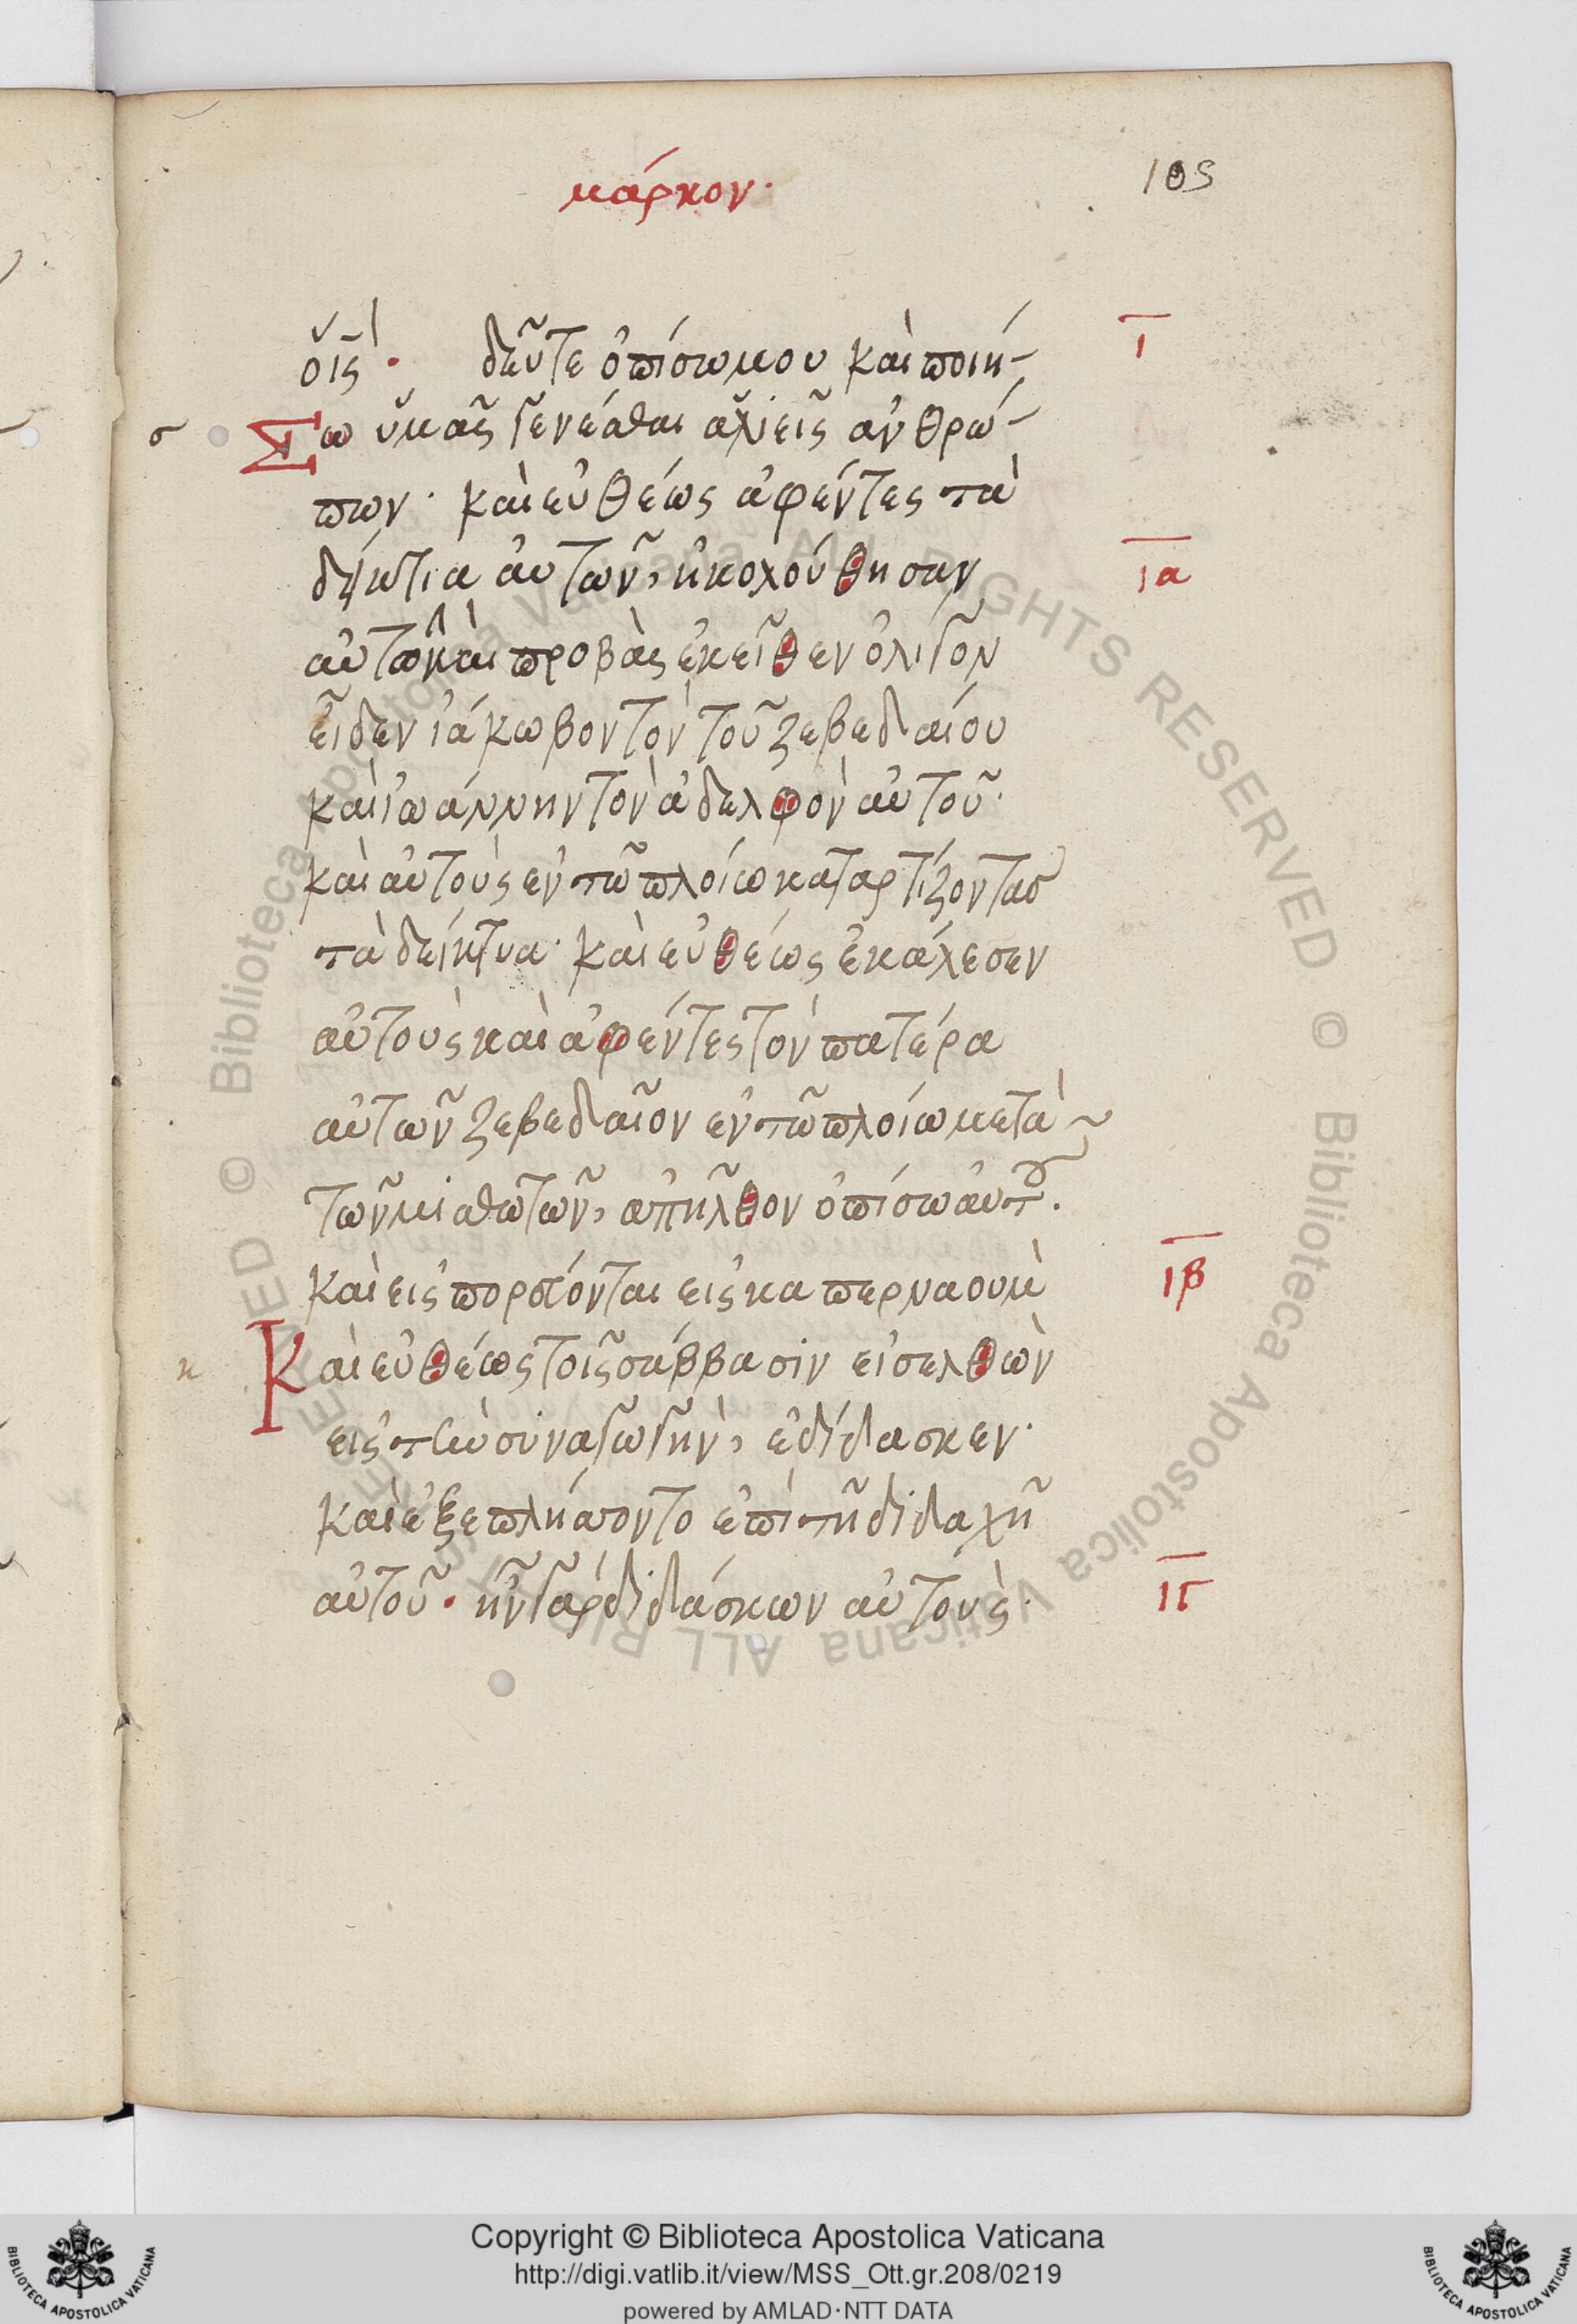 μάρκον·
105
οἷς· δεῦτε ὀπίσω μου καὶ ποιή-
ι
Σω ὑμᾶς γενέσθαι ἁλιεῖς ἀνθρώ-
σ
πων· καὶ εὐθέως ἀφέντες τὰ
δίκτια αὐτῶν, ἠκολούθησαν
ια
αὐτῶ καὶ προβὰς ἐκεῖθεν ὀλίγον
εἶδεν ἰάκωβον τὸν τοῦ ζεβεδαίου
καὶ ἰωάννην τὸν ἀδελφὸν αὐτοῦ·
καὶ αὐτοὺς ἐν τῶ πλοίω καταρτίζοντας
τὰ δείκτυα· καὶ εὐθέως ἐκάλεσεν
αὐτοὺς καὶ ἀφέντες τὸν πατέρα
αὐτῶν ζεβεδαῖον ἐν τῶ πλοίω μετὰ
τῶν μισθωτῶν, ἀπῆλθον ὀπίσω αὐτοῦ.
καὶ εἰσπορεύονται εἰς καπερναουμ
ιβ
Καὶ εὐθέως τοῖς σάββασιν εἰσελθὼν
κ
εἰς τὴν συναγωγὴν, ἐδίδασκεν·
καὶ ἐξεπλήσσοντο ἐπὶ τῆ διδαχῆ
αὐτοῦ· ἦν γὰρ διδάσκων αὐτοὺς·
ιγ
© Biblioteca Apostolica Vaticana ALL RIGHTS RESERVED © Biblioteca Apostolica Vaticana ALL RIGHTS RESERVED
Copyright © Biblioteca Apostolica Vaticana
http://digi.vatlib.it/view/MSS_Ott.gr.208/0219
powered by AMLAD·NTT DATA
BIBLIOTECA APOSTOLICA VATICANA
BIBLIOTECA APOSTOLICA VATICANA